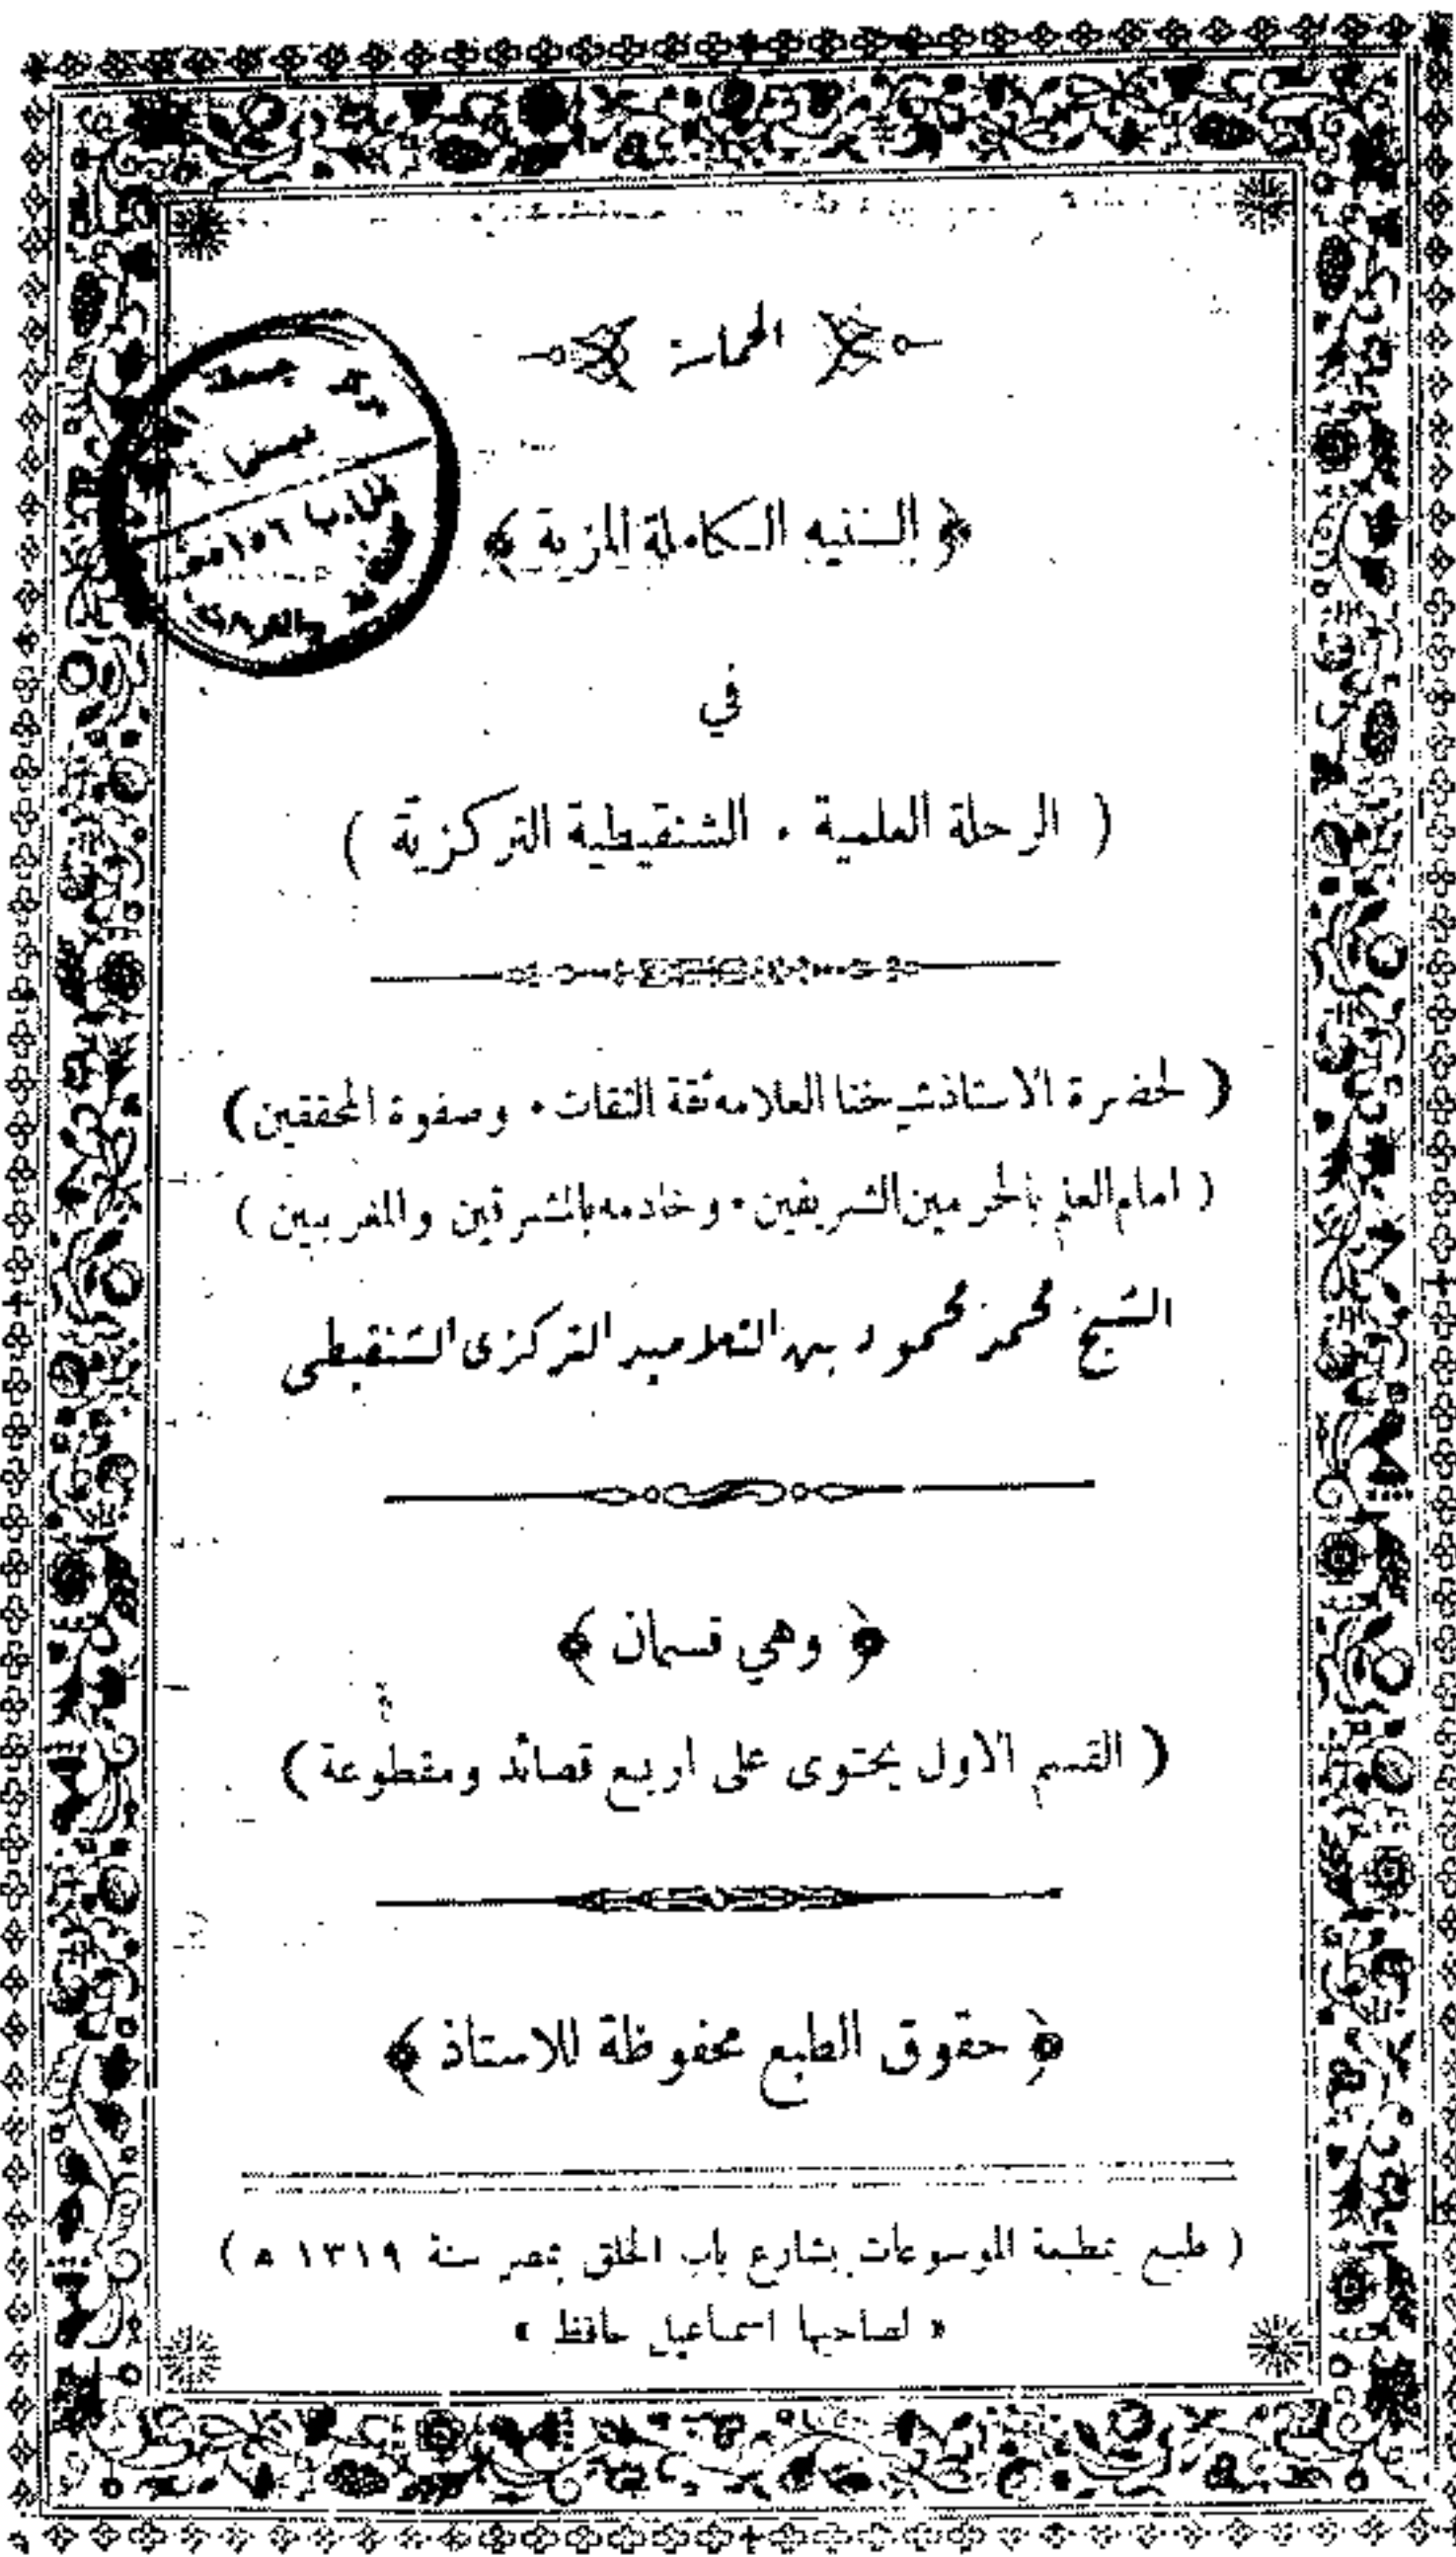 الحماسة
﴿ السنيه الكاملة المزية ﴾
في
( الرحلة العلمية ٠ الشنقيطية التركزية )
( لحضرة الاستاذ شيخنا العلامه ثقة الثقات ٠ وصفوة المحققين )
( امام العلم بالحرمين الشريفين ٠ وخادمه بالمشرقين والمغربين )
الشيخ محمد محمود بن التلاميد التركزى الشنقيطى
﴿ وهي قسمان ﴾
( القسم الاول يحتوى على اربع قصائد ومقطوعة )
﴿ حقوق الطبع محفوظة للاستاذ ﴾
( طبع بمطبعة الموسوعات بشارع باب الخلق بمصر سنة ١٣١٩ ه )
« لصاحبها اسماعيل حافظ »